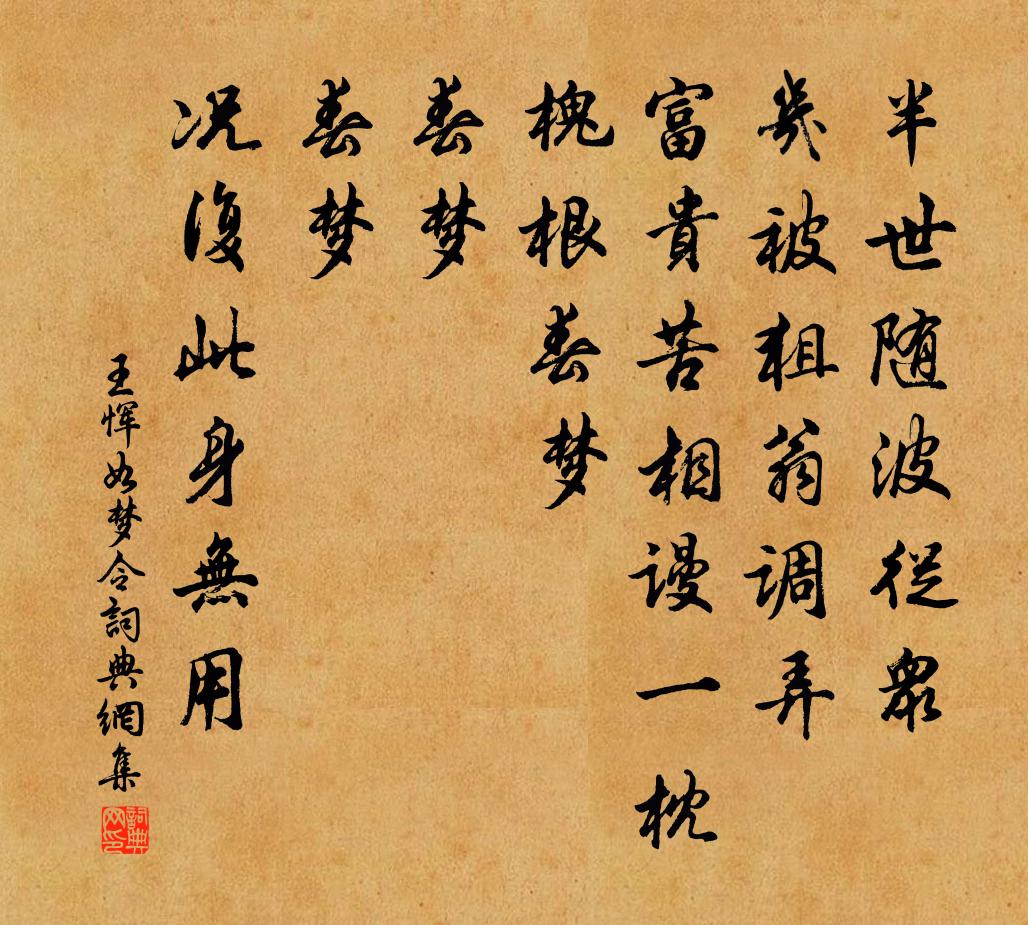 半世随波從眾
幾被狙翁调弄
富貴苦相謾一枕
槐根春梦
春梦
春梦
况復此身無用
王恽如梦令詞典網集
詞典网印